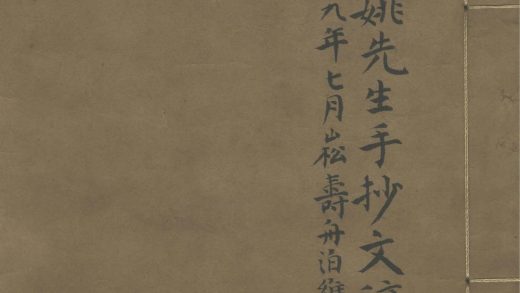 姚先生手抄文稿
九年七月崧壽舟泊維